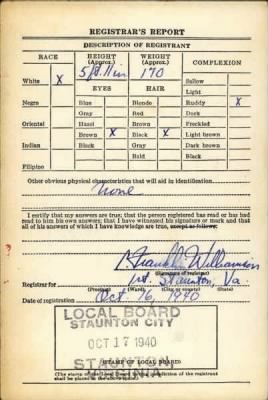 REGISTRAR'S REPORT
DESCRIPTION OF REGISTRANT
RACE HEIGHT (Approx.) WEIGHT (Approx.) COMPLEXION
5 ft. 11 in 170 Sallow
White X EYES HAIR Light
Negro Blue Blonde Ruddy X
Gray Red Dark
Oriental Hazel Brown Freckled
Brown X Black X Light brown
Indian Black Gray Dark brown
Bald Black
Filipino
Other obvious physical characteristics that will aid in identification
None
I certify that my answers are true; that the person registered has read or has had
read to him his own answers; that I have witnessed his signature or mark and that
all of his answers of which I have knowledge are true, except as follows:
Franklin Williamson
(Signature of registrar)
Registrar for 1st. Staunton, Va.
(Precinct) (Ward) (City or county) (State)
Date of registration Oct. 16, 1940
LOCAL BOARD
STAUNTON CITY
OCT 17 1940
STAUNTON
VIRGINIA
(STAMP OF LOCAL BOARD)
(The stamp of the Local Board of the registrant
shall be placed in the above space)